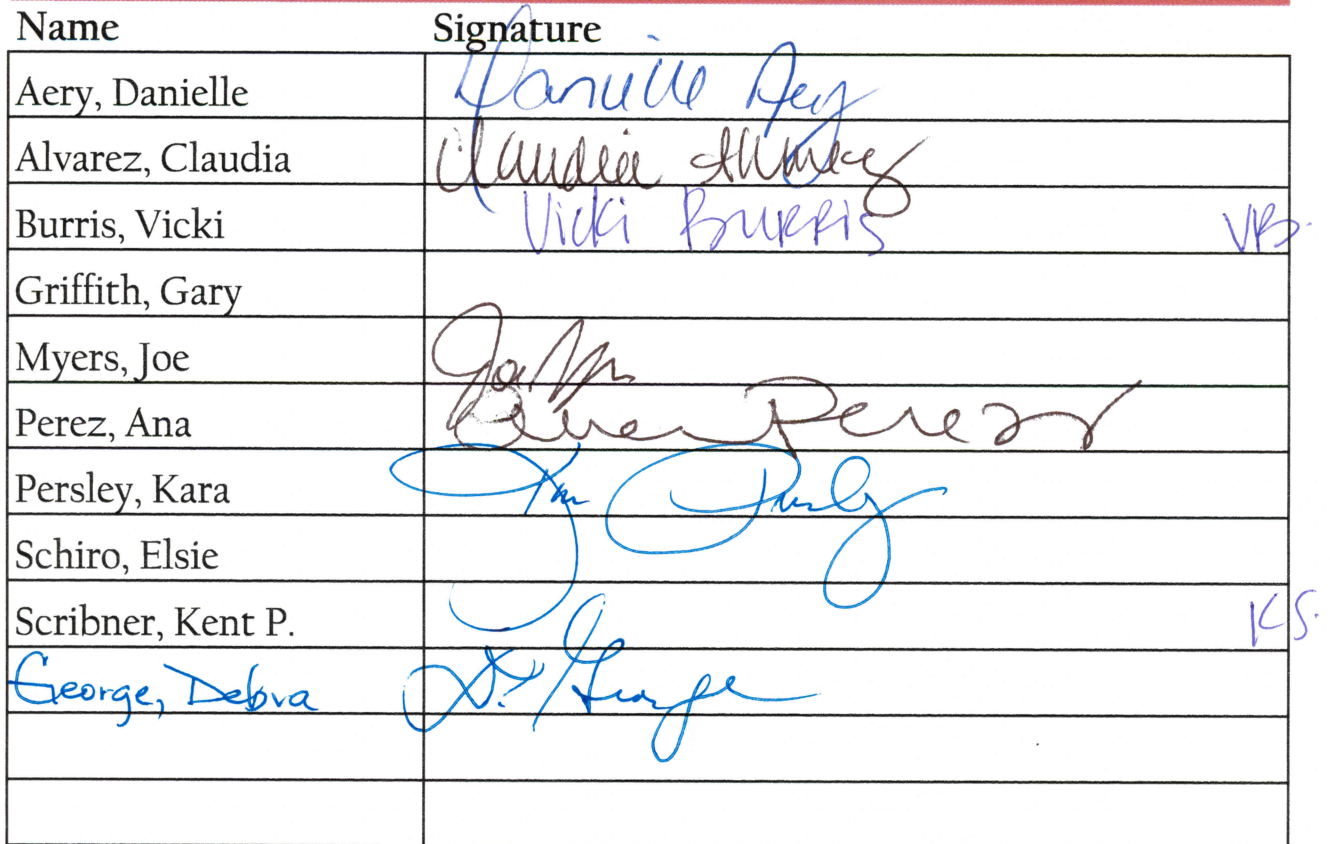 Name Signature
Aery, Danielle Danielle Aery
Alvarez, Claudia Claudia Alvarez
Burris, Vicki Vicki Burris VB.
Griffith, Gary
Myers, Joe Joe
Perez, Ana Perez
Persley, Kara
Schiro, Elsie
Scribner, Kent P. KS.
George, Debra D. George